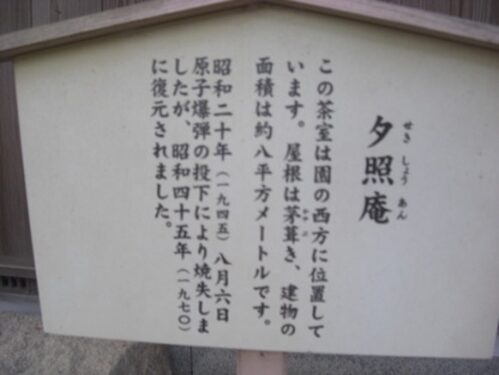 夕照庵
せき しょう あん
この茶室は園の西方に位置して
います。屋根は茅葺き、建物の
かや ぶ
面積は約八平方メートルです。
昭和二十年(一九四五)八月六日
原子爆弾の投下により焼失しま
したが、昭和四十五年(一九七〇)
に復元されました。